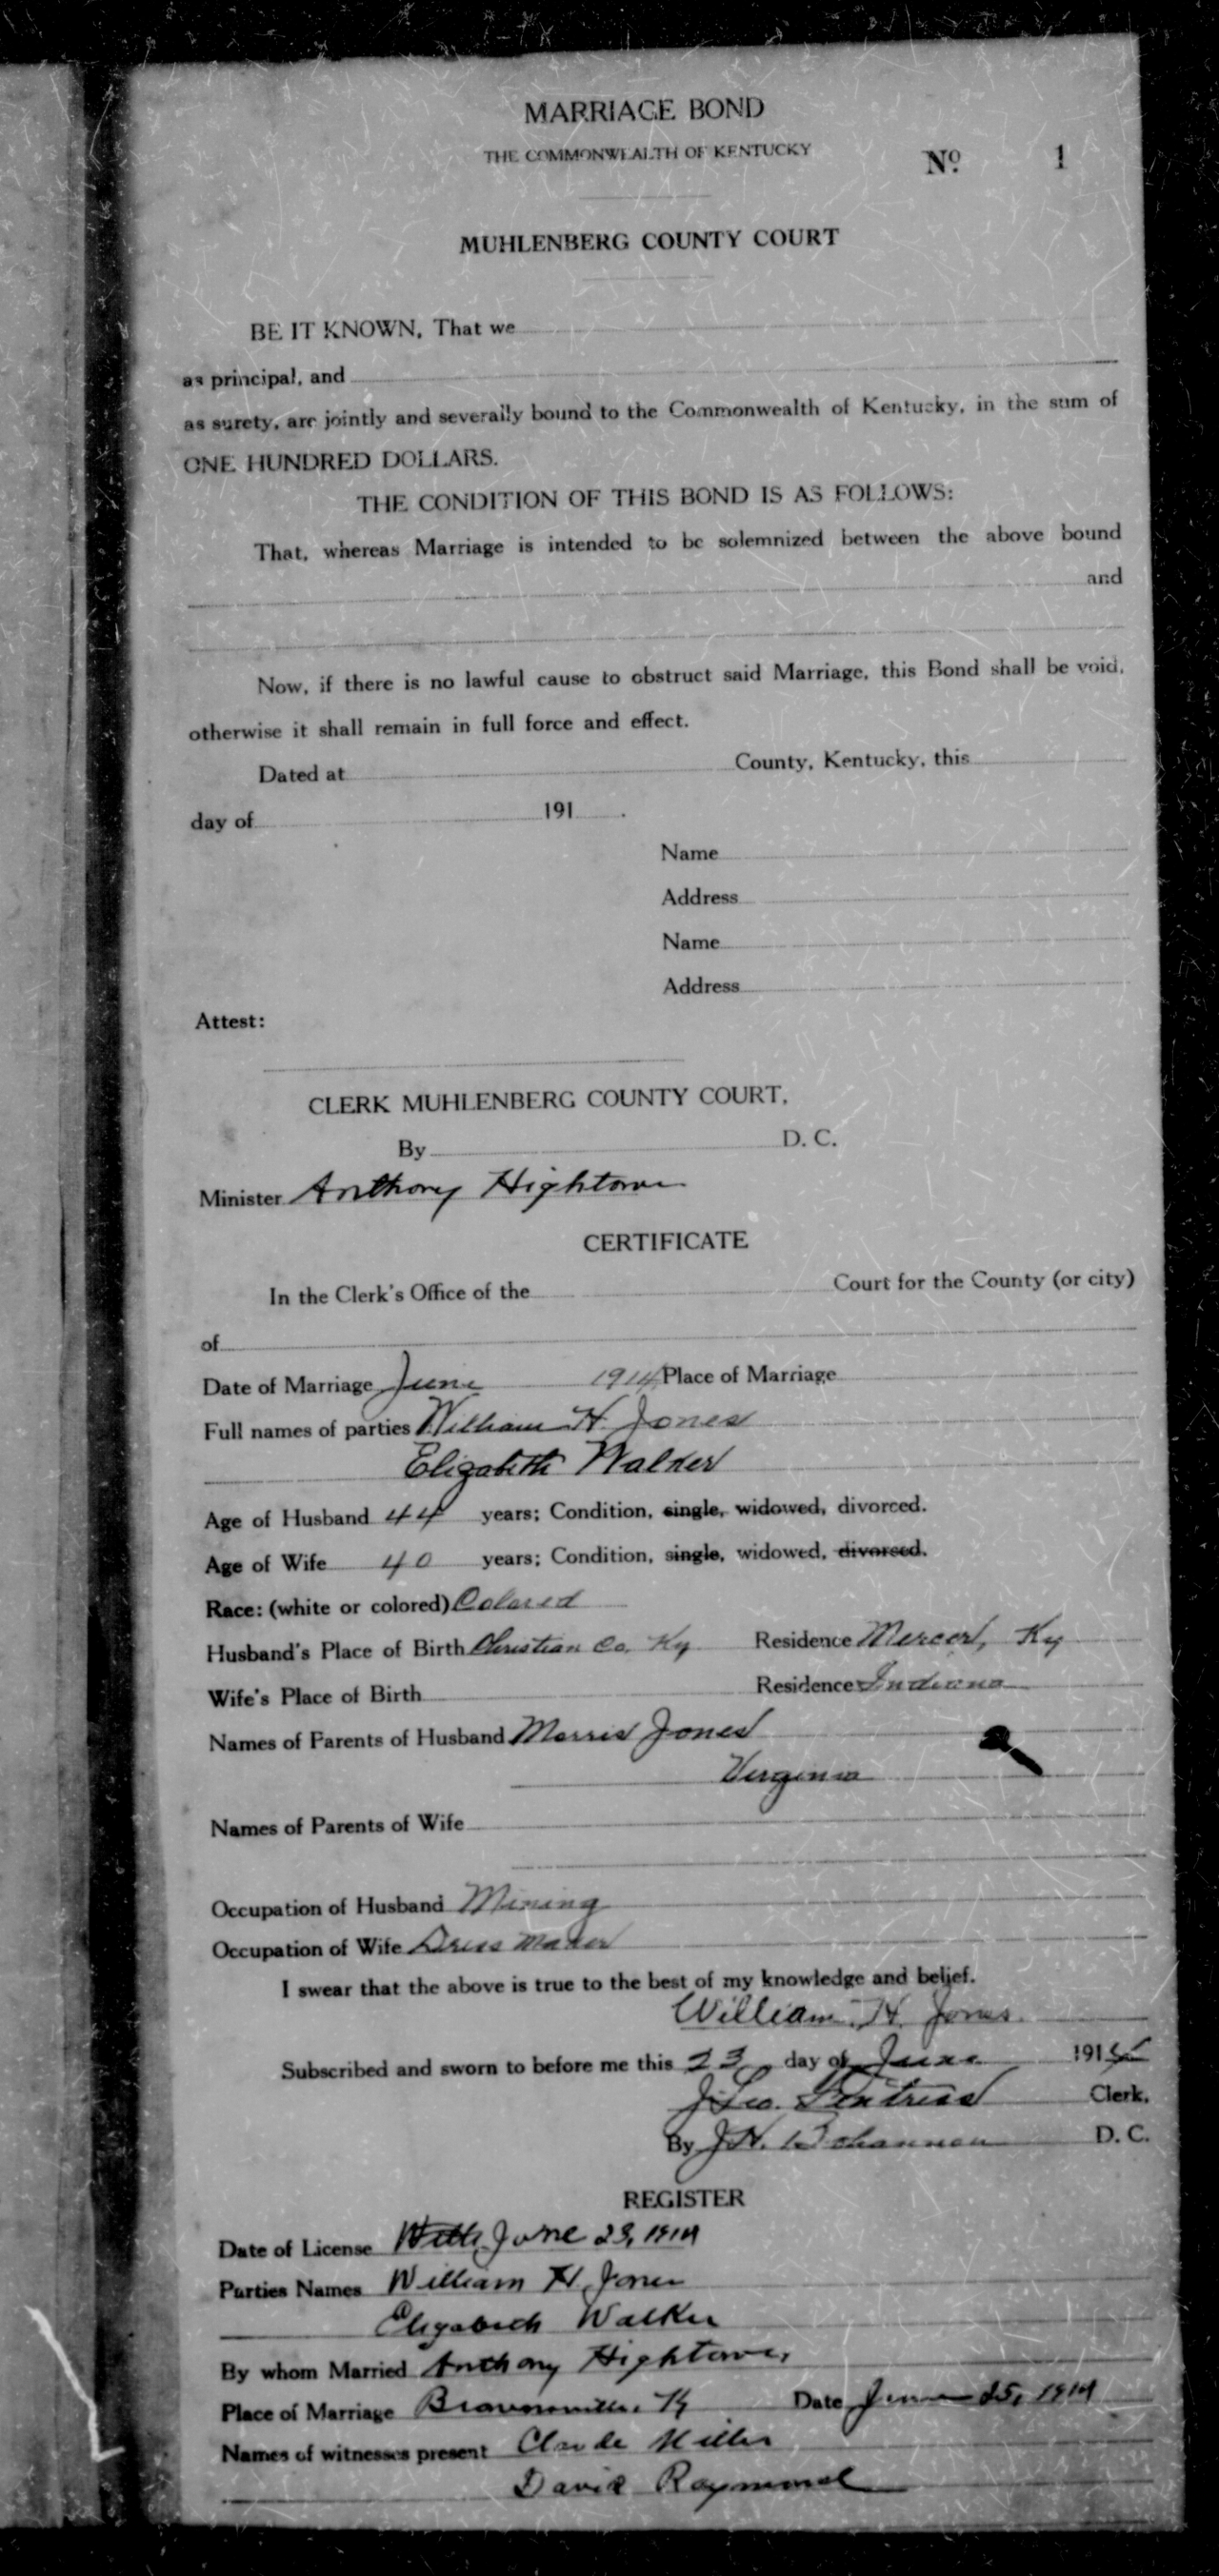 MARRIAGE BOND
THE COMMONWEALTH OF KENTUCKY
No. 1
MUHLENBERG COUNTY COURT
BE IT KNOWN, That we
as principal, and
as surety, are jointly and severally bound to the Commonwealth of Kentucky, in the sum of
ONE HUNDRED DOLLARS.
THE CONDITION OF THIS BOND IS AS FOLLOWS:
That, whereas Marriage is intended to be solemnized between the above bound
and
Now, if there is no lawful cause to obstruct said Marriage, this Bond shall be void,
otherwise it shall remain in full force and effect.
Dated at County, Kentucky, this
day of 191 .
Name
Address
Name
Address
Attest:
CLERK MUHLENBERG COUNTY COURT,
By D. C.
Minister Anthony Hightower
CERTIFICATE
In the Clerk's Office of the Court for the County (or city)
of
Date of Marriage June 1914 Place of Marriage
Full names of parties William H. Jones
Elizabeth Walker
Age of Husband 44 years; Condition, single, widowed, divorced.
Age of Wife 40 years; Condition, single, widowed, divorced.
Race: (white or colored) Colored
Husband's Place of Birth Christian Co. Ky Residence Mercer, Ky
Wife's Place of Birth Residence Indiana
Names of Parents of Husband Morris Jones
Virginia
Names of Parents of Wife
Occupation of Husband Mining
Occupation of Wife Dress Maker
I swear that the above is true to the best of my knowledge and belief.
William H. Jones
Subscribed and sworn to before me this 23 day of June 1914
Clerk.
By J.H. Bohannon D. C.
REGISTER
Date of License June 23, 1914
Parties Names William H. Jones
Elizabeth Walker
By whom Married Anthony Hightower
Place of Marriage Brownsville, Ky Date June 25, 1914
Names of witnesses present Claude Miller
David Raymond